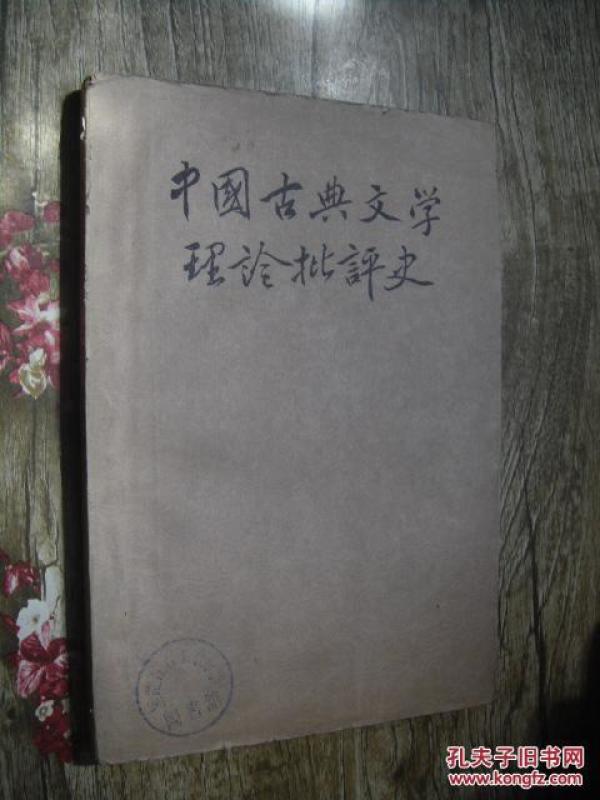 中國古典文学
理論批評史
圖書館
孔夫子旧书网
www.kongfz.com